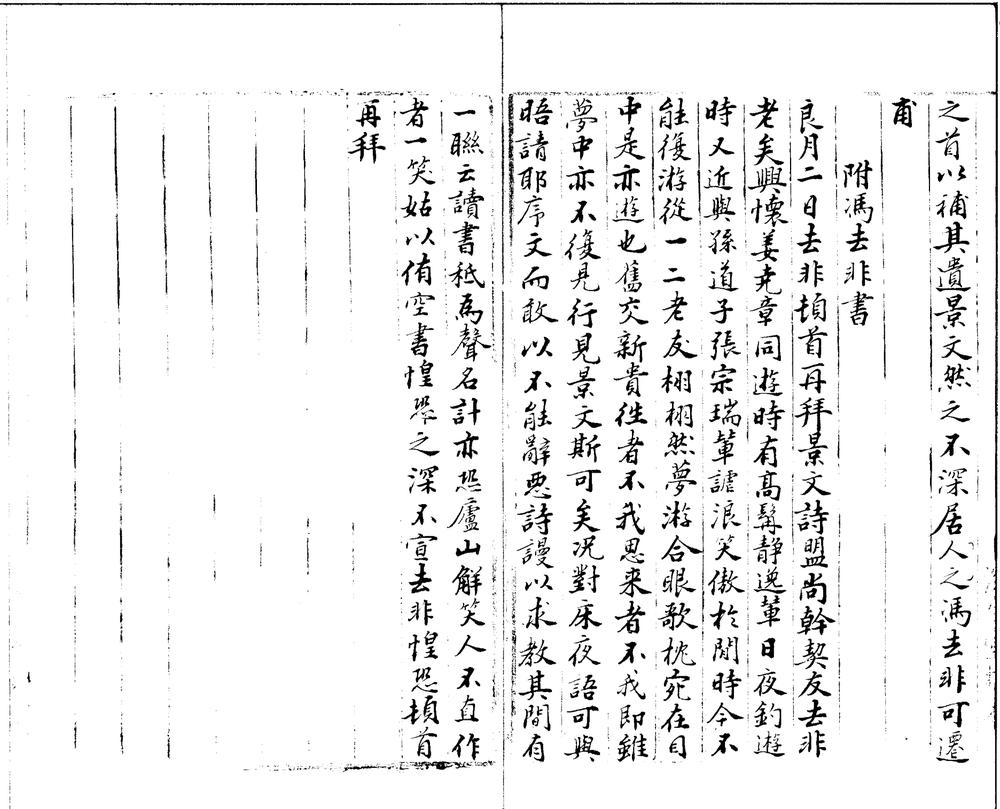 之首以補其遺景文然之不深居人之馮去非可遷
甫
附馮去非書
良月二日去非頓首再拜景文詩盟尚幹契友去非
老矣興懷姜堯章同遊時有高髯靜逸輩日夜釣遊
時又近與孫道子張宗瑞輩謔浪笑傲於閒時今不
能復游從一二老友栩栩然夢游合眼欹枕宛在目
中是亦遊也舊交新貴徃者不我思来者不我即雖
夢中亦不復見行見景文斯可矣况對床夜語可與
晤請耶序文而敢以不能辭惡詩謾以求教其間有
一聯云讀書秪為聲名計亦恐廬山解笑人不直作
者一笑姑以侑空書惶恐之深不宣去非惶恐頓首
再拜